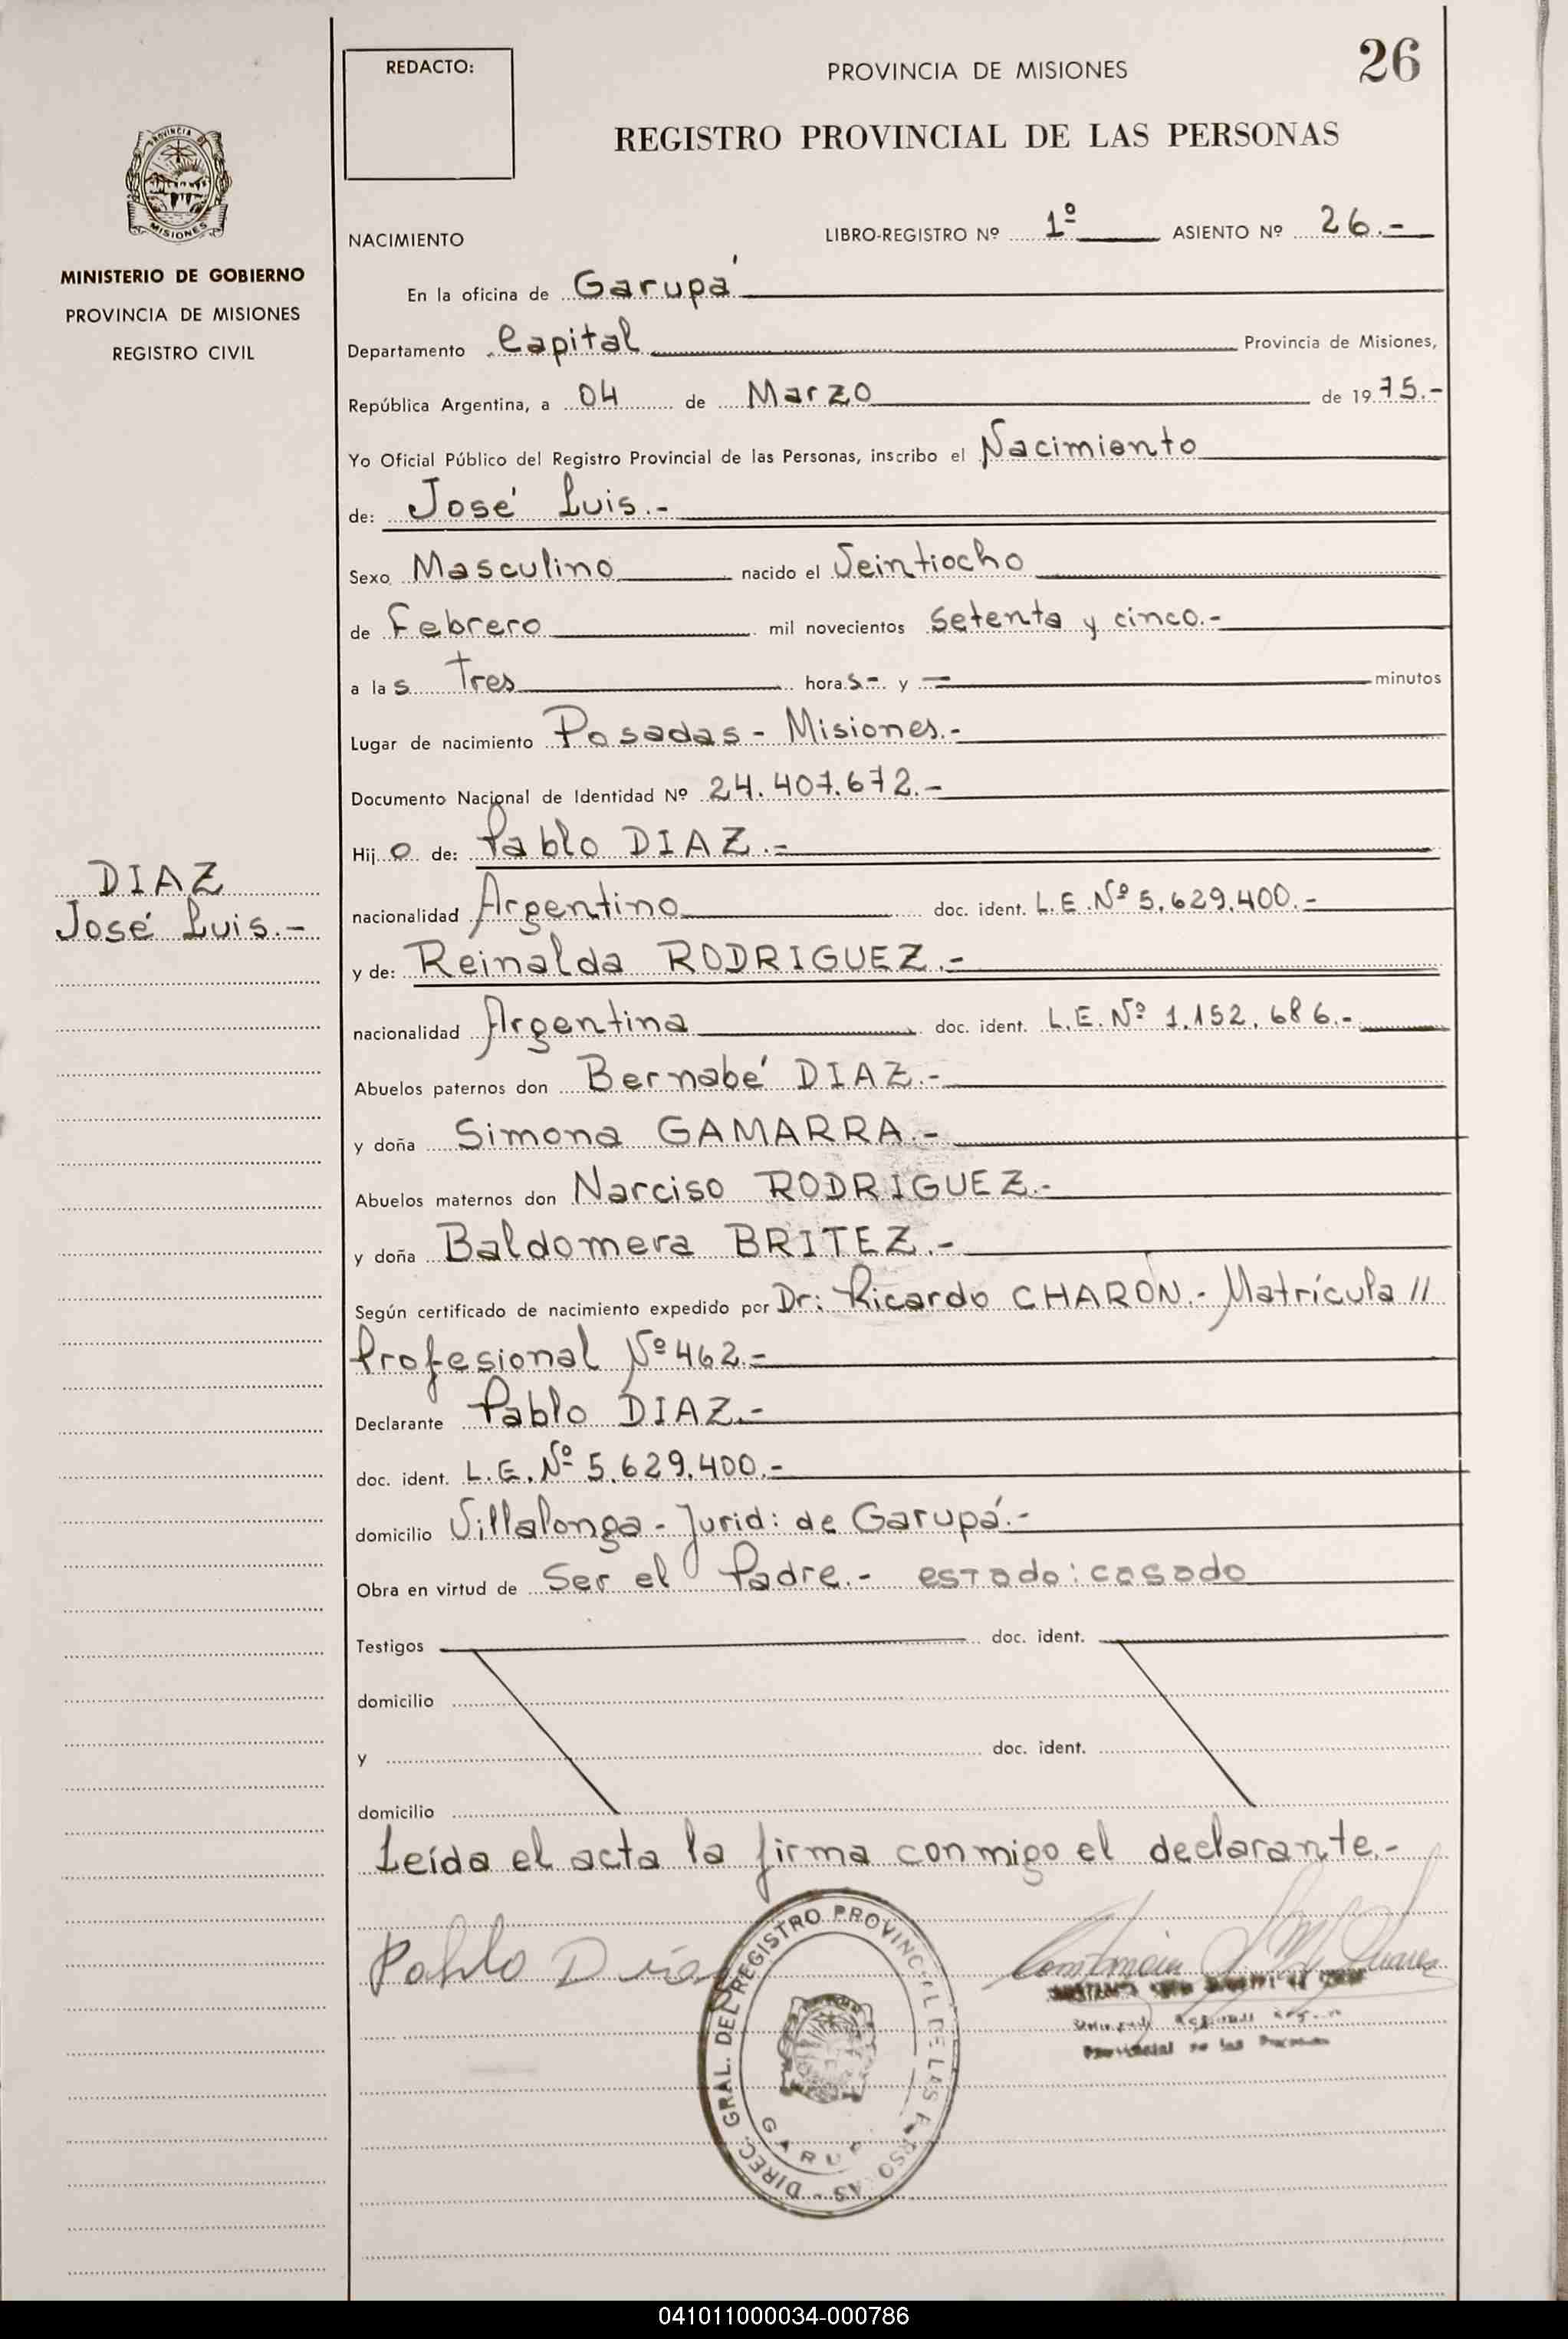 REDACTO:
PROVINCIA DE MISIONES
26
REGISTRO PROVINCIAL DE LAS PERSONAS
PROVINCIA DE
MISIONES
MINISTERIO DE GOBIERNO
PROVINCIA DE MISIONES
REGISTRO CIVIL
NACIMIENTO LIBRO-REGISTRO Nº 1º ASIENTO Nº 26.-
En la oficina de Garupá
Departamento Capital Provincia de Misiones,
República Argentina, a 04 de Marzo de 1975.-
Yo Oficial Público del Registro Provincial de las Personas, inscribo el Nacimiento
de: José Luis.-
Sexo Masculino nacido el Veintiocho
de Febrero mil novecientos setenta y cinco.-
a las Tres horas.- y = minutos
Lugar de nacimiento Posadas - Misiones.-
Documento Nacional de Identidad Nº 24.407.672.-
Hijo de: Pablo DIAZ.-
DIAZ
José Luis.-
nacionalidad Argentino doc. ident. L.E.Nº 5.629.400.-
y de: Reinalda RODRIGUEZ.-
nacionalidad Argentina doc. ident. L.E.Nº 1.152.686.-
Abuelos paternos don Bernabé DIAZ.-
y doña Simona GAMARRA.-
Abuelos maternos don Narciso RODRIGUEZ.-
y doña Baldomera BRITEZ.-
Según certificado de nacimiento expedido por Dr: Ricardo CHARON.- Matrícula //
Profesional Nº 462.-
Declarante Pablo DIAZ.-
doc. ident. L.E.Nº 5.629.400.-
domicilio Villalonga - Jurid: de Garupá.-
Obra en virtud de Ser el Padre.- estado: casado
Testigos doc. ident.
domicilio
y doc. ident.
domicilio
Leída el acta la firma conmigo el declarante.-
Pablo Diaz
DIREC. GRAL. DEL REGISTRO PROVINCIAL DE LAS PERSONAS -
Provincial de las Personas
041011000034-000786